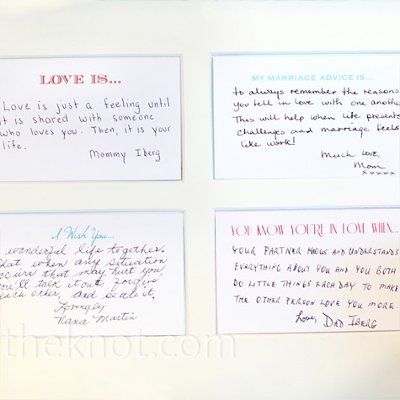 LOVE IS...
Love is just a feeling until
it is shared with someone
who loves you. Then, it is your
life.
Mommy Iberg
MY MARRIAGE ADVICE IS...
to always remember the reasons
you fell in love with one another
This will help when life presents
challenges and marriage feels
like work!
Much Love,
Mom
xxxxx
I Wish You...
wonderful life together.
that when any situation
that may hurt you,
you'll talk it out, forgive
each other, and
Lovingly
Nana Martin
YOU KNOW YOU'RE IN LOVE WHEN...
YOUR PARTNER KNOWS AND UNDERSTANDS
EVERYTHING ABOUT YOU AND YOU BOTH
DO LITTLE THINGS EACH DAY TO MAKE
THE OTHER PERSON LOVE YOU MORE.
Love, DAD IBERG
theknot.com